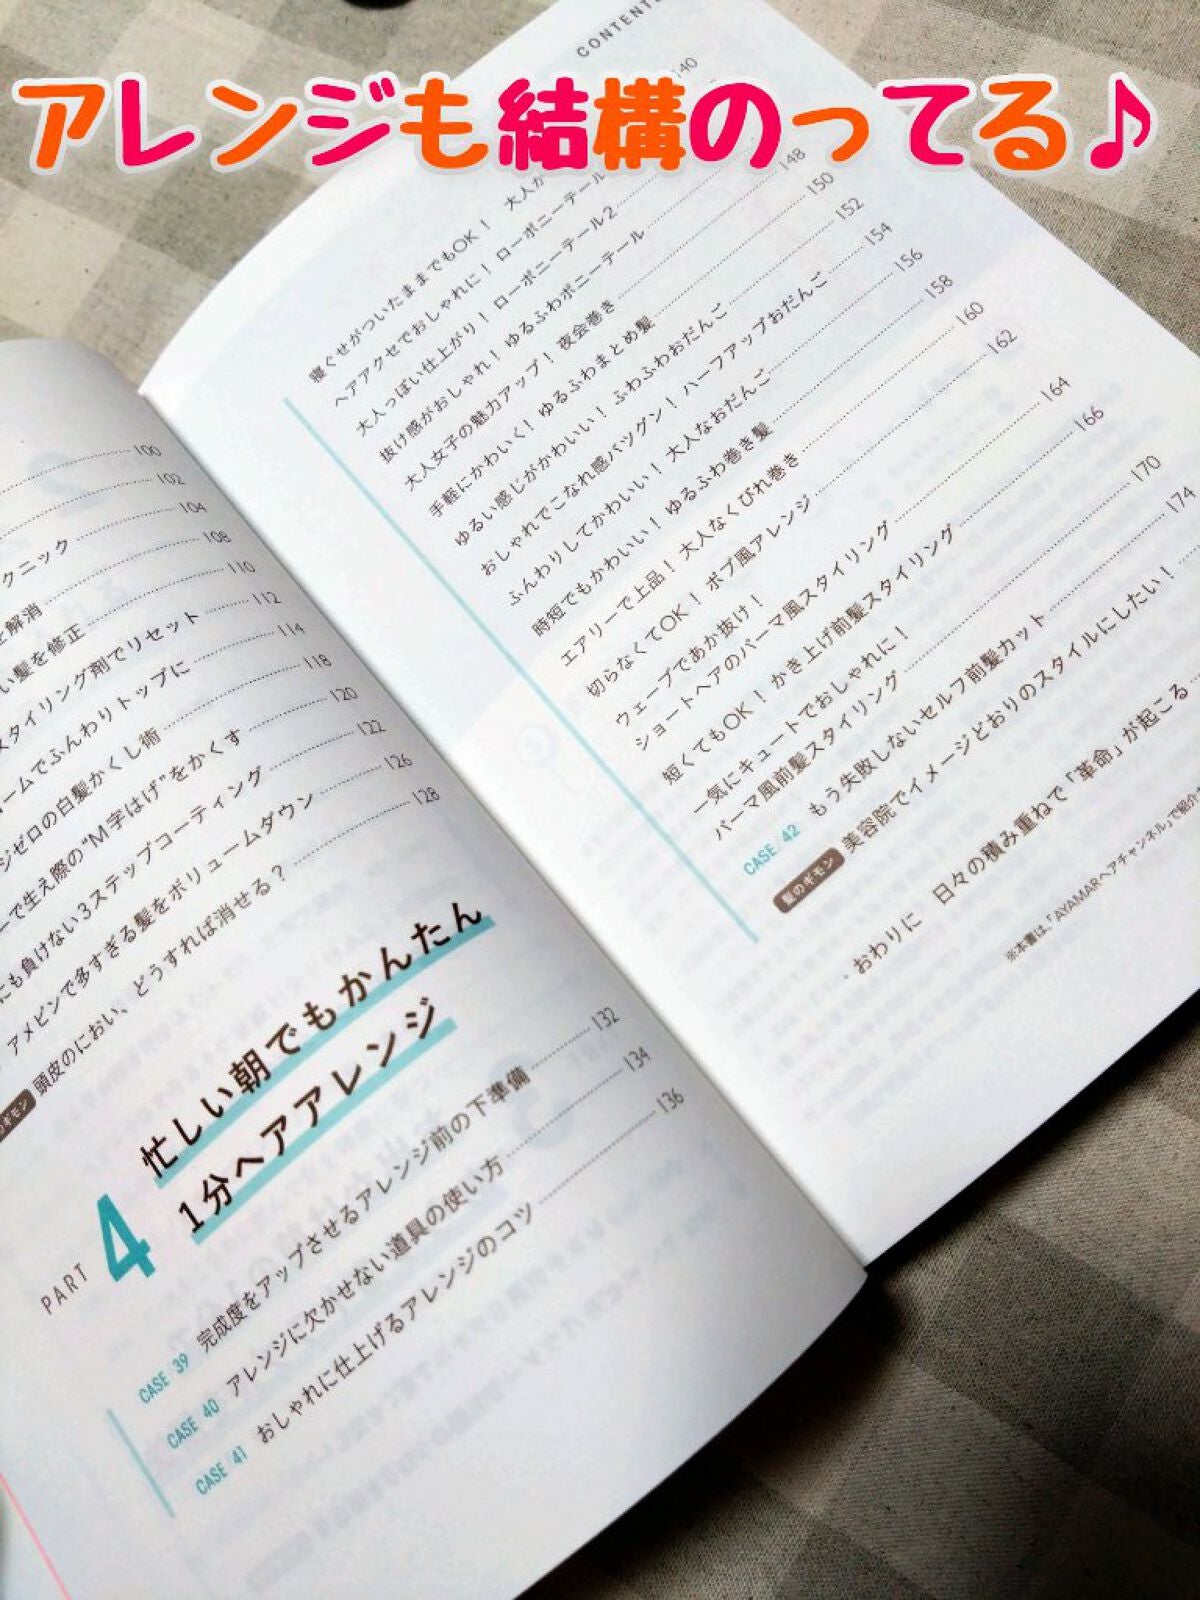 アレンジも結構のってる♪
100
102
クニック 104
を解消 108
い髪を修正 110
スタイリング剤でリセット 112
ームでふんわりトップに 114
ジゼロの白髪かくし術 118
ーで生え際の“M字はげ”をかくす 120
にも負けない3ステップコーティング 122
アメピンで多すぎる髪をボリュームダウン 126
のギモン 頭皮のにおい、どうすれば消せる? 128
PART 4 忙しい朝でもかんたん
1分ヘアアレンジ
CASE 39 完成度をアップさせるアレンジ前の下準備 132
CASE 40 アレンジに欠かせない道具の使い方 134
CASE 41 おしゃれに仕上げるアレンジのコツ 136
CONTENTS
140
寝ぐせがついたままでもOK! 大人か
ヘアアクセでおしゃれに! ローポニーテール
大人っぽい仕上がり! ローポニーテール2 148
抜け感がおしゃれ! ゆるふわポニーテール 150
大人女子の魅力アップ! 夜会巻き 152
手軽にかわいく! ゆるふわまとめ髪 154
ゆるい感じがかわいい! ふわふわおだんご 156
おしゃれでこなれ感バツグン! ハーフアップおだんご 158
ふんわりしてかわいい! 大人なおだんご 160
時短でもかわいい! ゆるふわ巻き髪 162
エアリーで上品! 大人なくびれ巻き 164
切らなくてOK! ボブ風アレンジ 166
ウェーブであか抜け!
ショートヘアのパーマ風スタイリング
短くてもOK! かき上げ前髪スタイリング
一気にキュートでおしゃれに!
パーマ風前髪スタイリング
CASE 42 もう失敗しないセルフ前髪カット 170
髪のギモン 美容院でイメージどおりのスタイルにしたい! 174
おわりに 日々の積み重ねで「革命」が起こる
※本書は、「AYAMARヘアチャンネル」で紹介